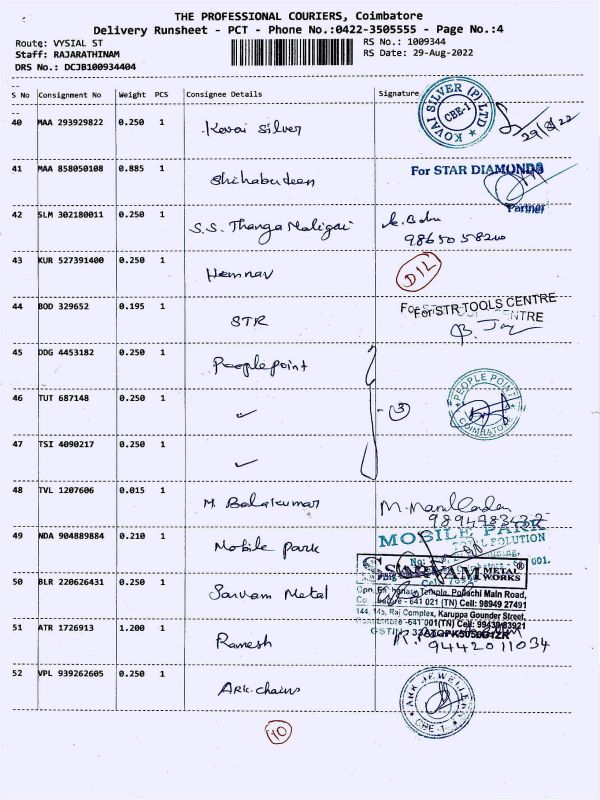 THE PROFESSIONAL COURIERS, Coimbatore
Delivery Runsheet - PCT - Phone No.:0422-3505555 - Page No.:4
Route: VYSIAL ST
RS No.: 1009344
Staff: RAJARATHINAM
RS Date: 29-Aug-2022
DRS No.: DCJB100934404
S No Consignment No Weight PCS Consignee Details Signature
40 MAA 293929822 0.250 1 Kovai Silver
KOVAI SILVER (P) LTD CBE-1 29/8/22
41 MAA 858050108 0.885 1 Shihabudeen
For STAR DIAMONDS
Partner
42 SLM 302180011 0.250 1 S.S. Thanga Maligai
43 KUR 527391400 0.250 1 Hemnav D/L
44 BOD 329652 0.195 1 STR
For STR TOOLS CENTRE
45 DDG 4453182 0.250 1 Peoplepoint
46 TUT 687148 0.250 1 ✓ - 3
PEOPLE POINT COIMBATORE
47 TSI 4090217 0.250 1 ✓
48 TVL 1207606 0.015 1 M. Balakumar
49 NDA 904889884 0.210 1 Mobile park
MOBILE PARK
TOTAL SOLUTION
50 BLR 220626431 0.250 1 Sarvam Metal
SARVAM METAL WORKS ®
Temple, Pollachi Main Road,
641 021 (TN) Cell: 98949 27491
144, 145, Raj Complex, Karuppa Gounder Street,
Coimbatore -641 001(TN) Cell: 99439 83921
GSTIN
51 ATR 1726913 1.200 1 Ramesh
9442011034
52 VPL 939262605 0.250 1 ARK.chains
ARK JEWELLERS CBE-1
10